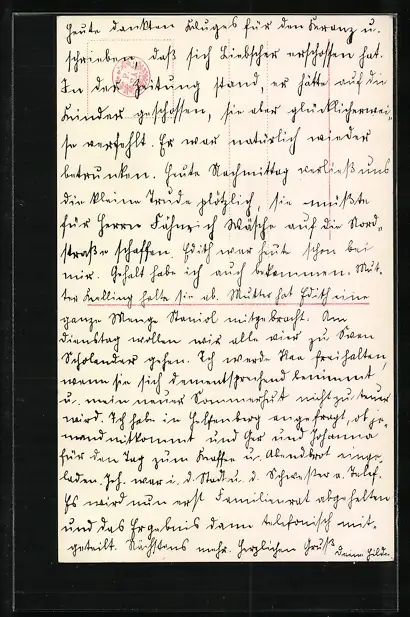 Heute dankten Kluges für den Kranz u.
schrieben, daß sich Liebscher erschossen hat.
In der Zeitung stand, er hätte auf die
Kinder geschossen, sie aber glücklicherwei-
se verfehlt. Er war natürlich wieder
betrunken. Heute Nachmittag verließ uns
die kleine Trude plötzlich, sie mußte
für Herrn Fähnrich Wäsche auf die Nord-
straße schaffen. Edith war heute schon bei
mir. Gehalt habe ich auch bekommen. Mut-
ter Kelling holte sie ab. Mutter hat Edith eine
ganze Menge Staniol mitgebracht. Am
Dienstag wollen wir alle vier zu Sven
Scholander gehen. Ich werde Ilse freihalten,
wenn sie sich dementsprechend benimmt
u. mein neuer Sommerhut nicht zu teuer
wird. Ich habe in Helfenberg angefragt, ob je-
mand mitkommt und Ger und Johanna
für den Tag zum Kaffee u. Abendbrot einge-
laden. Joh. war i. d. Stadt u. d. Schweßer a. Telef.
Es wird nun erst Familienrat abgehalten
und das Ergebnis dann telefonisch mit-
geteilt. Nächstens mehr. Herzlichen Gruß
Deine Hilde